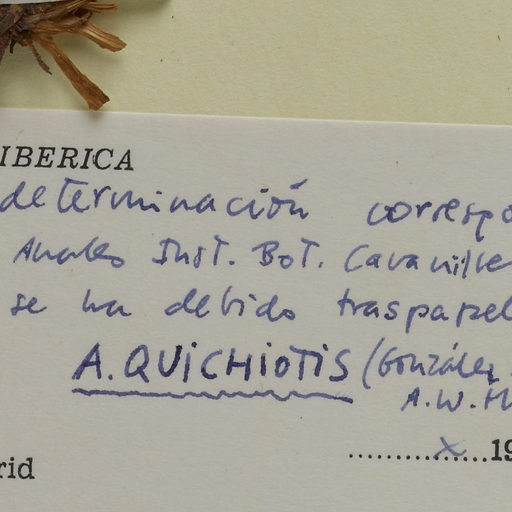 IBERICA
determinación correspo
Anales Inst. Bot. Cavanilles
se ha debido traspapel
A. QUICHIOTIS (González
A.W. H
rid ...............X......19